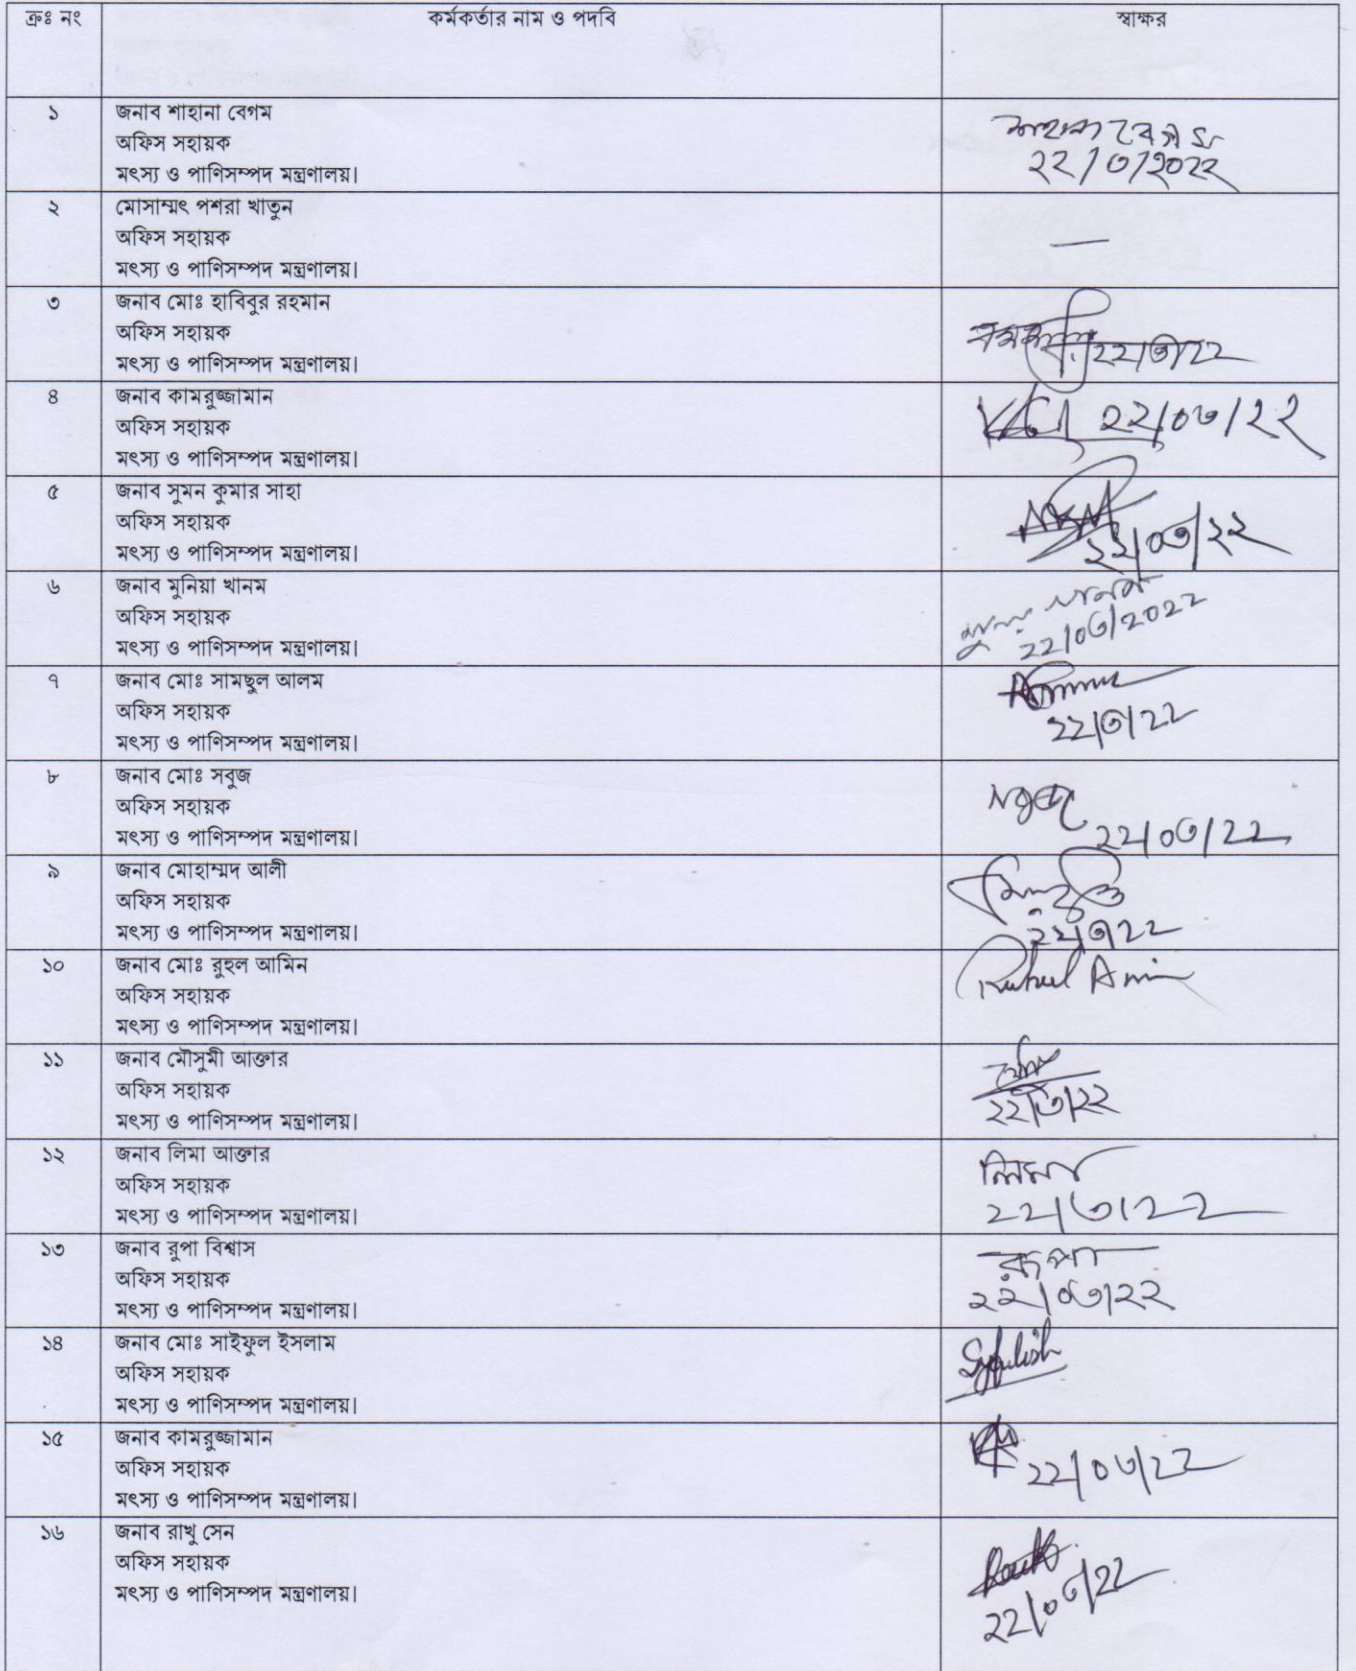 ক্রঃ নং কর্মকর্তার নাম ও পদবি স্বাক্ষর
১ জনাব শাহানা বেগম
অফিস সহায়ক
মৎস্য ও পাণিসম্পদ মন্ত্রণালয়।
শাহানা বেগম
২২/৩/২০২২
২ মোসাম্মৎ পশরা খাতুন
অফিস সহায়ক
মৎস্য ও পাণিসম্পদ মন্ত্রণালয়।
—
৩ জনাব মোঃ হাবিবুর রহমান
অফিস সহায়ক
মৎস্য ও পাণিসম্পদ মন্ত্রণালয়।
২২/৩/২২
৪ জনাব কামরুজ্জামান
অফিস সহায়ক
মৎস্য ও পাণিসম্পদ মন্ত্রণালয়।
২২/০৩/২২
৫ জনাব সুমন কুমার সাহা
অফিস সহায়ক
মৎস্য ও পাণিসম্পদ মন্ত্রণালয়।
২২/০৩/২২
৬ জনাব মুনিয়া খানম
অফিস সহায়ক
মৎস্য ও পাণিসম্পদ মন্ত্রণালয়।
২২/০৩/২০২২
৭ জনাব মোঃ সামছুল আলম
অফিস সহায়ক
মৎস্য ও পাণিসম্পদ মন্ত্রণালয়।
২২/৩/২২
৮ জনাব মোঃ সবুজ
অফিস সহায়ক
মৎস্য ও পাণিসম্পদ মন্ত্রণালয়।
সবুজ
২২/০৩/২২
৯ জনাব মোহাম্মদ আলী
অফিস সহায়ক
মৎস্য ও পাণিসম্পদ মন্ত্রণালয়।
২২/৩/২২
১০ জনাব মোঃ রুহুল আমিন
অফিস সহায়ক
মৎস্য ও পাণিসম্পদ মন্ত্রণালয়।
Ruhul Amin
১১ জনাব মৌসুমী আক্তার
অফিস সহায়ক
মৎস্য ও পাণিসম্পদ মন্ত্রণালয়।
২২/৩/২২
১২ জনাব লিমা আক্তার
অফিস সহায়ক
মৎস্য ও পাণিসম্পদ মন্ত্রণালয়।
লিমা
২২/৩/২২
১৩ জনাব রুপা বিশ্বাস
অফিস সহায়ক
মৎস্য ও পাণিসম্পদ মন্ত্রণালয়।
রূপা
২২/০৩/২২
১৪ জনাব মোঃ সাইফুল ইসলাম
অফিস সহায়ক
মৎস্য ও পাণিসম্পদ মন্ত্রণালয়।
১৫ জনাব কামরুজ্জামান
অফিস সহায়ক
মৎস্য ও পাণিসম্পদ মন্ত্রণালয়।
২২/০৩/২২
১৬ জনাব রাখু সেন
অফিস সহায়ক
মৎস্য ও পাণিসম্পদ মন্ত্রণালয়।
২২/০৩/২২